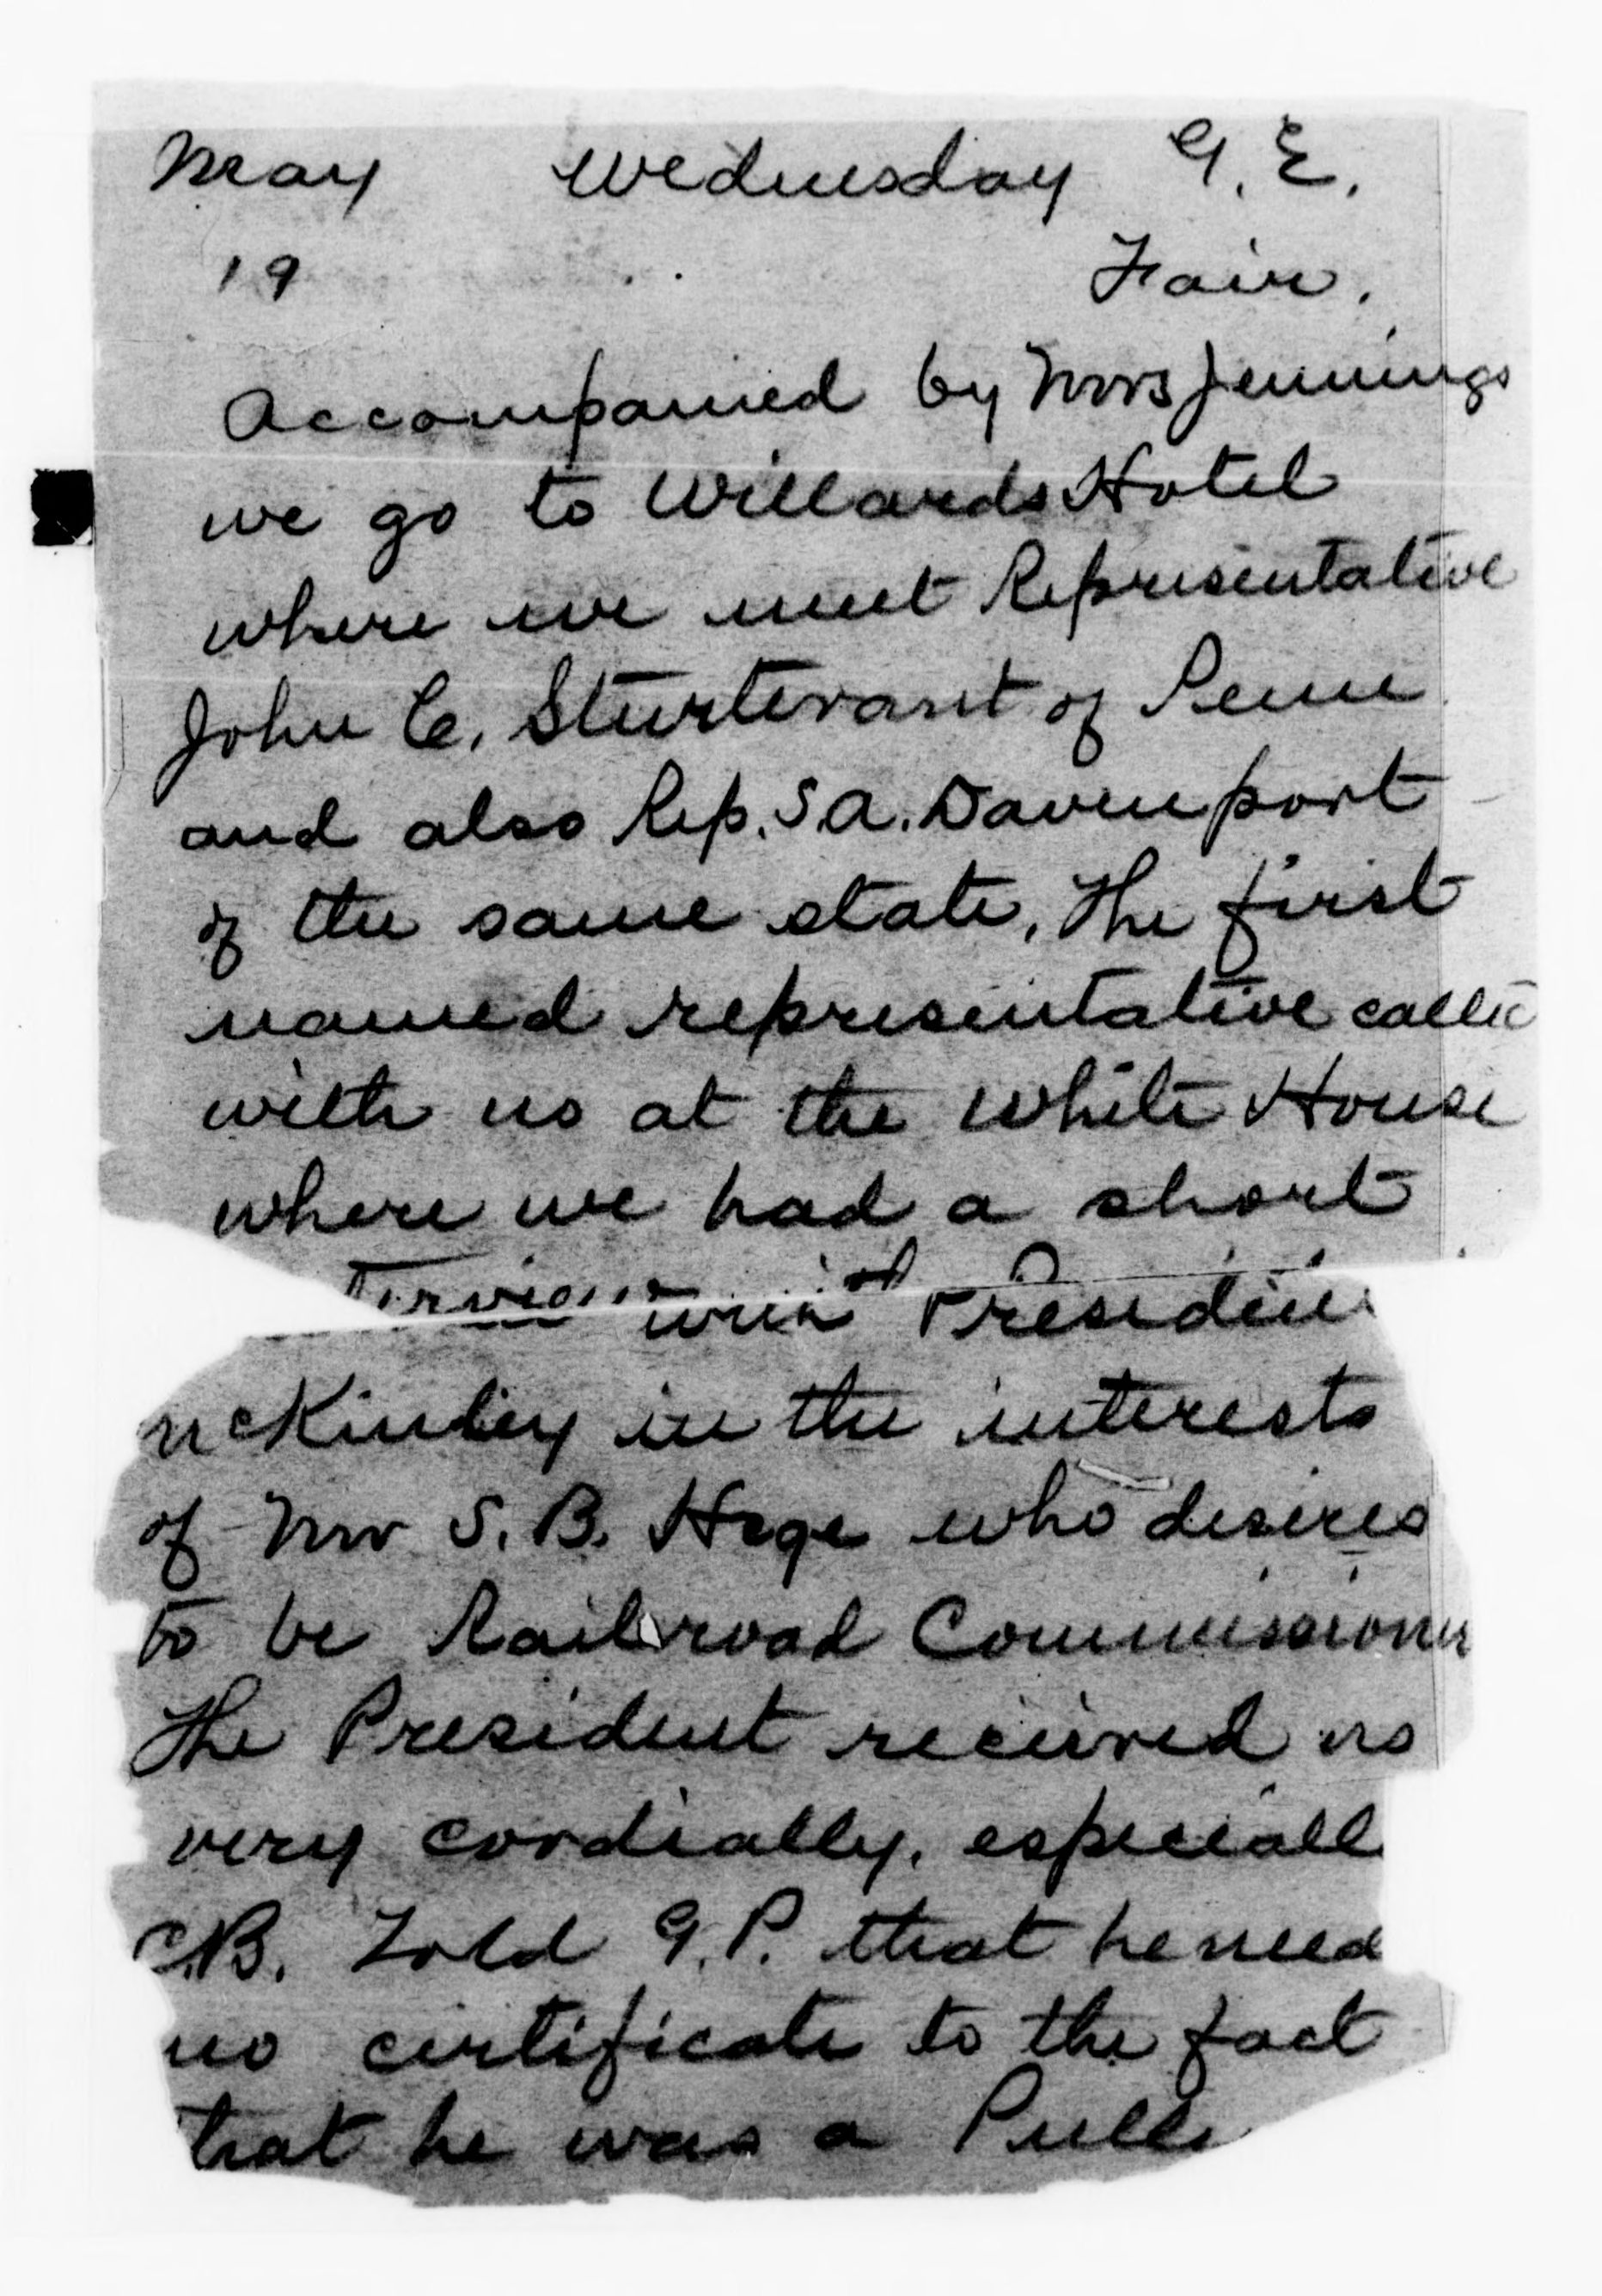 May Wednesday G. E.
19 Fair.
Accompanied by Mrs Jennings
we go to Willards Hotel
where we meet Representative
John C. Sturtevant of Penn
and also Rep. S.A. Davenport
of the same state, The first
named representative calle
with us at the White House
where we had a short
terview with President
McKinley in the interests
of Mr S. B. Hege who desires
to be Railroad Commissioner
The President received us
very cordially, especiall
C.B. Told G.P. that he need
no certificate to the fact
that he was a Pulle